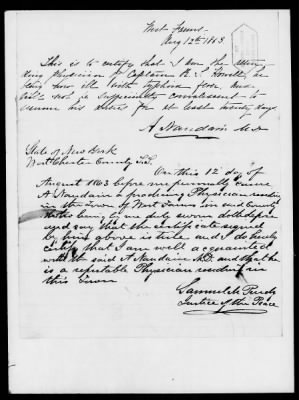 West Farms
Aug 12th 1863.
This is to certify that I am the attending
physician of Captain R. S.
he is now ill with typhoid fever, and
will not be sufficiently convalescent to
resume his duties for at least twenty days
A Nandain M.D.
State of New York
West Chester County S.S.
On this 12 day of
August 1863 before me personally came
A Nandain a practising Physician residing
in the Town of West Farms in said County
who being by me duly sworn doth depose
and say that the certificate signed
by him above is true and I do hereby
certify that I am well acquainted
with the said A Nandain M.D. and that he
is a reputable Physician residing in
this Town
Samuel M Purdy
Justice of the Peace